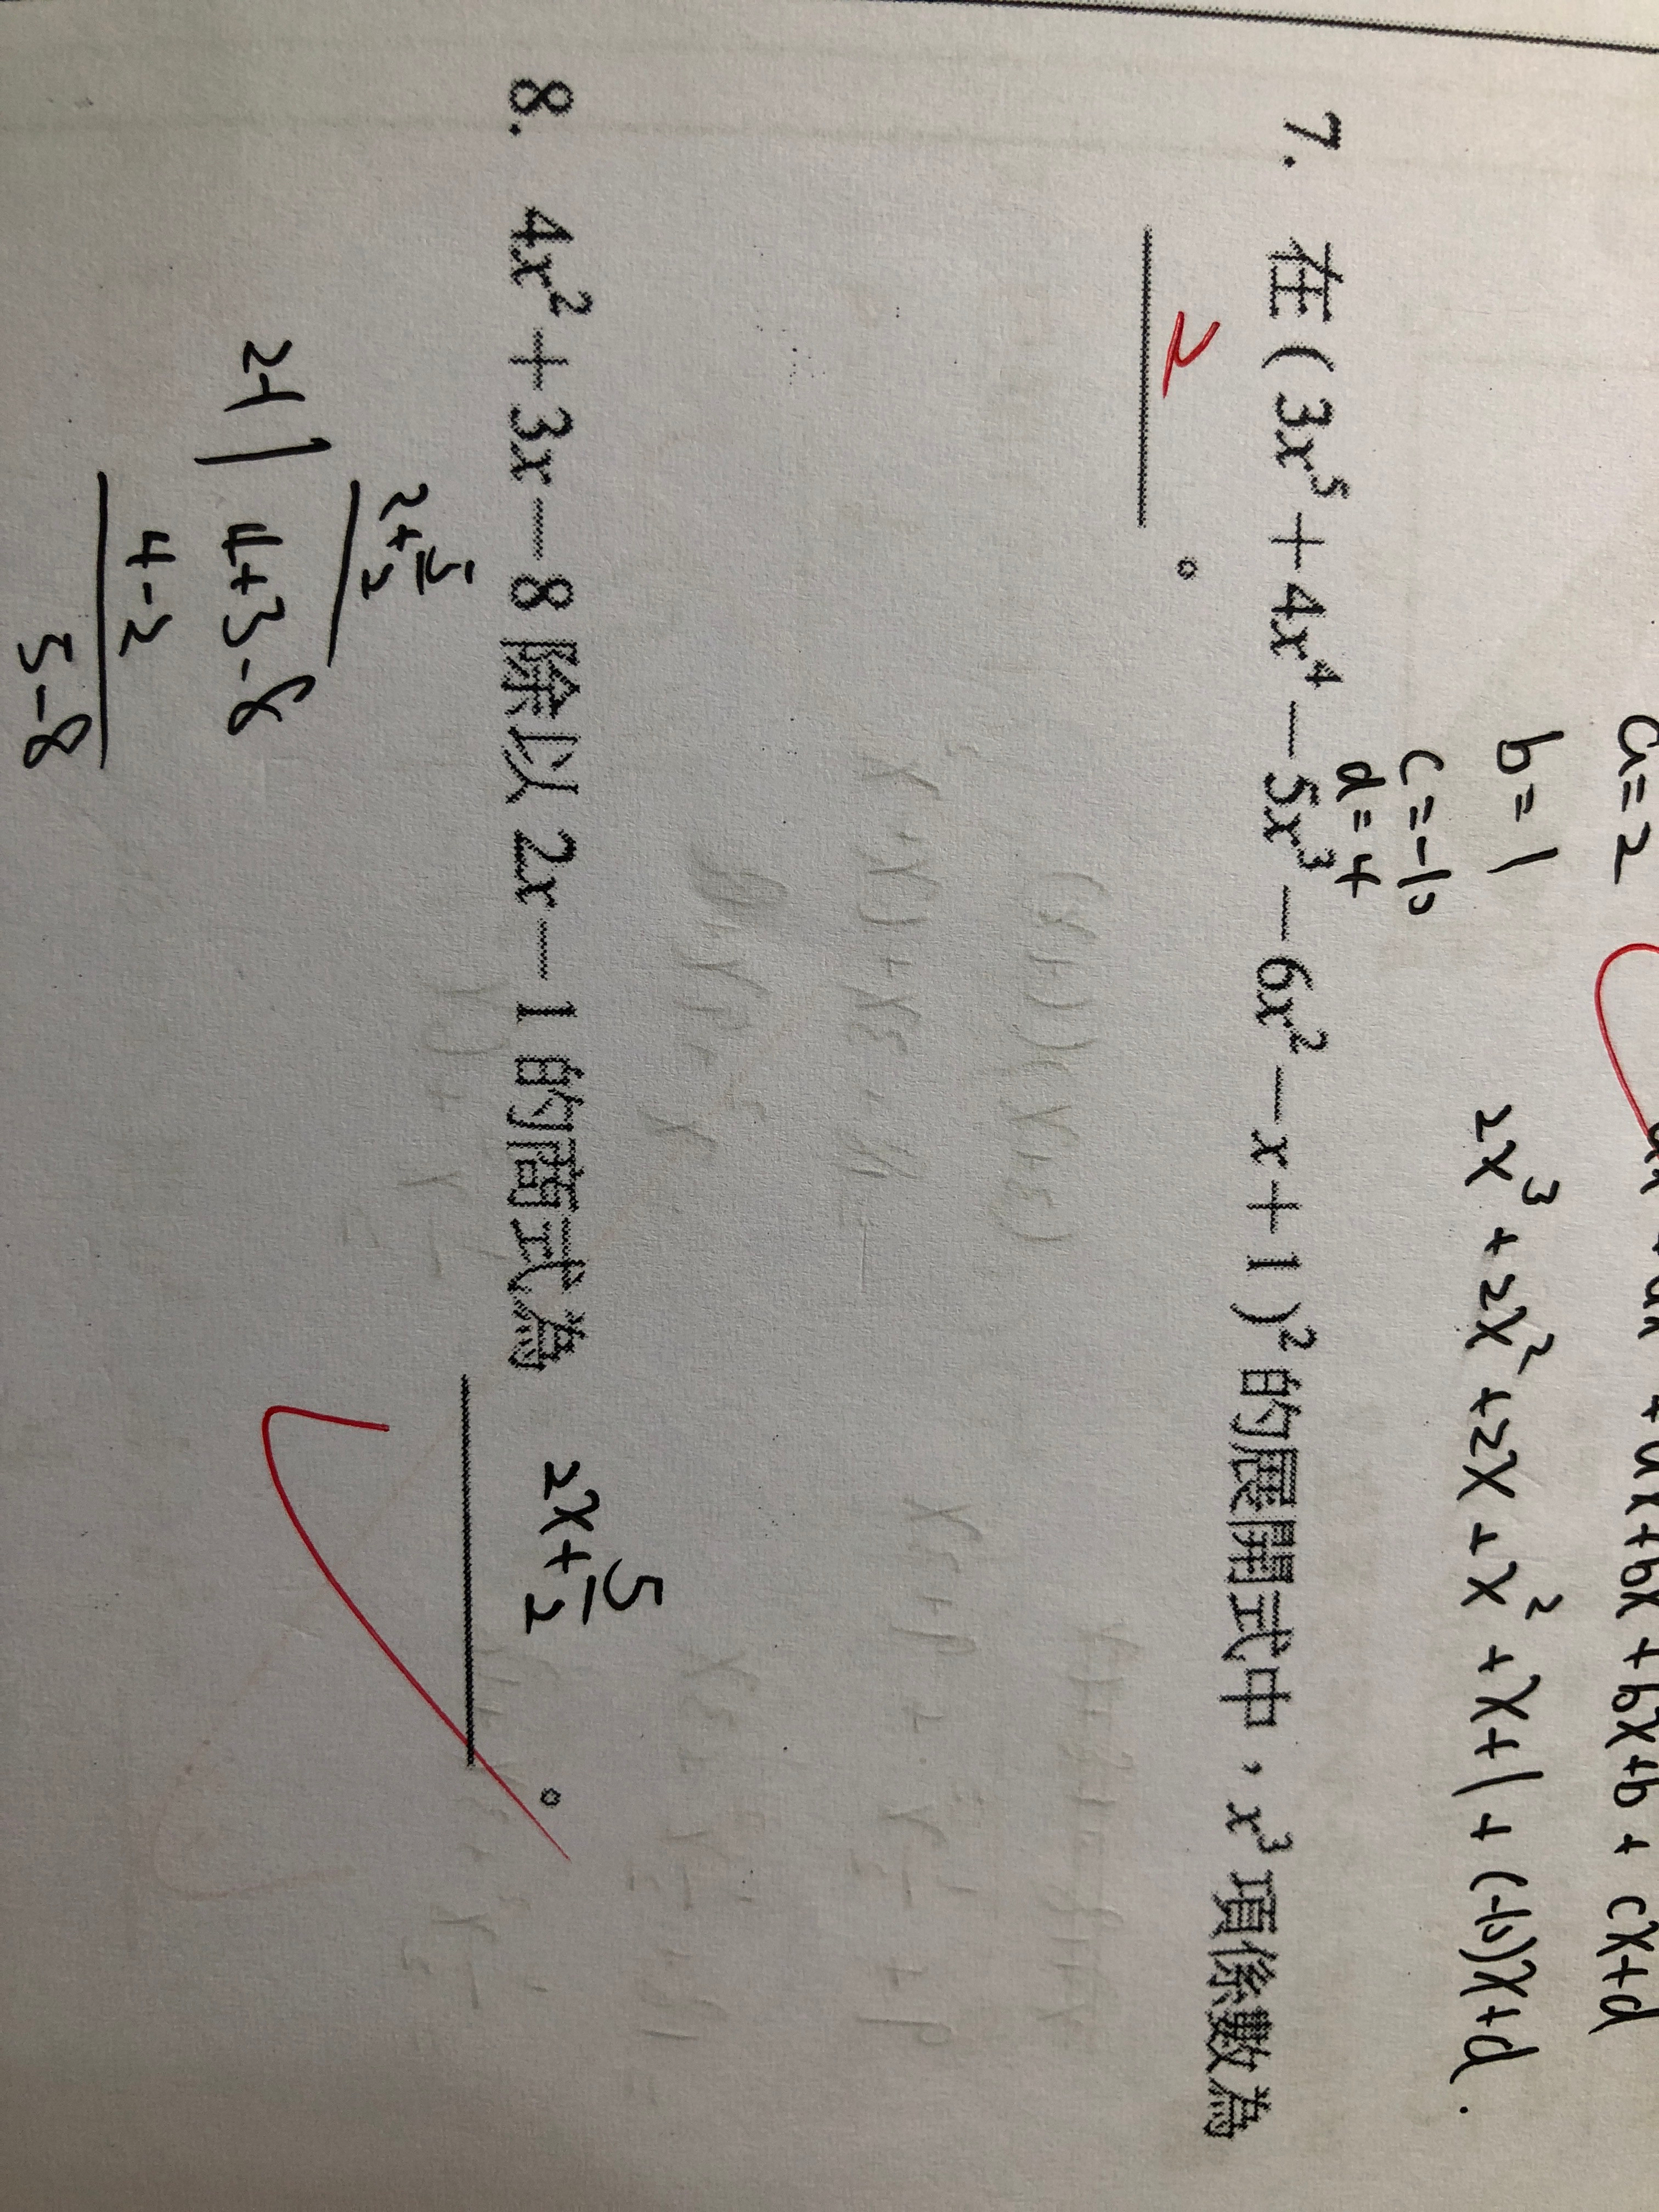 a=2
b=1
c=-10
d=4
+bx+b+cx+d
2x³+2x²+2x+x²+x+1+(-10)x+d.
7. 在(3x⁵+4x⁴-5x³-6x²-x+1)²的展開式中,x³項係數為
2。
8. 4x²+3x-8除以2x-1的商式為 2x+5/2。
2+5/2
2-1 4+3-8
4-2
5-8